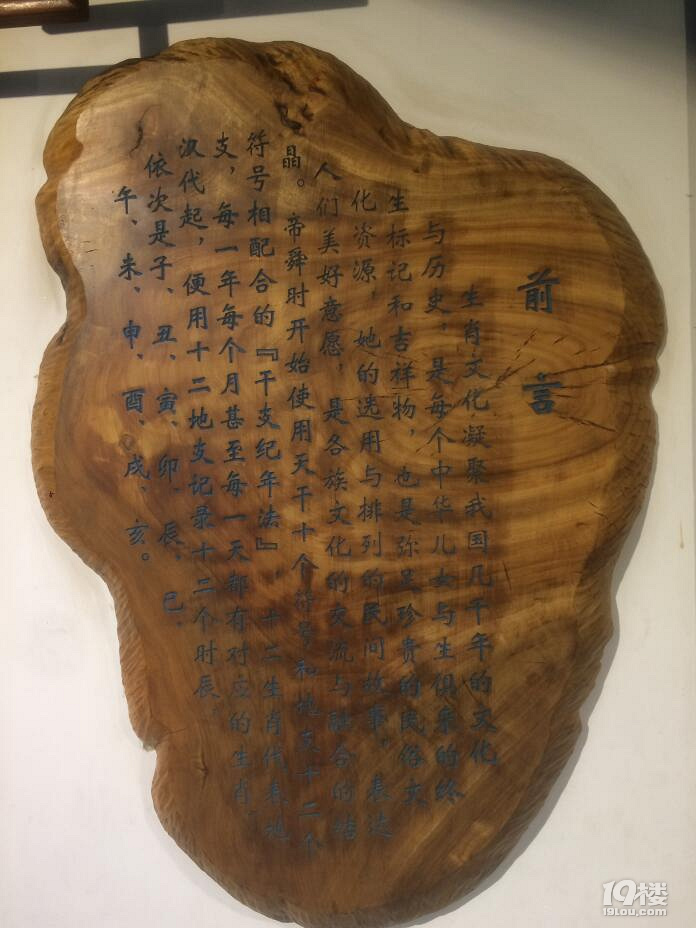 前言
生肖文化凝聚我国几千年的文化
与历史，是每个中华儿女与生俱来的终
生标记和吉祥物，也是弥足珍贵的民俗文
化资源，她的选用与排列的民间故事，表达
人们美好意愿，是各族文化的交流与融合的结
晶。帝舜时开始使用天干十个符号和地支十二个
符号相配合的『干支纪年法』十二生肖代表地
支，每一年每个月甚至每一天都有对应的生肖。
汉代起，便用十二地支记录十二个时辰，
依次是子、丑、寅、卯、辰、巳、
午、未、申、酉、戌、亥。
19楼
19Lou.com